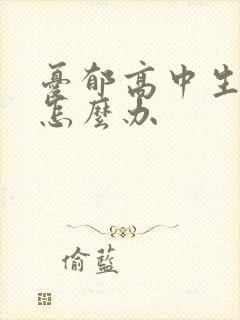 憂郁高中生
怎麼办
偷藍